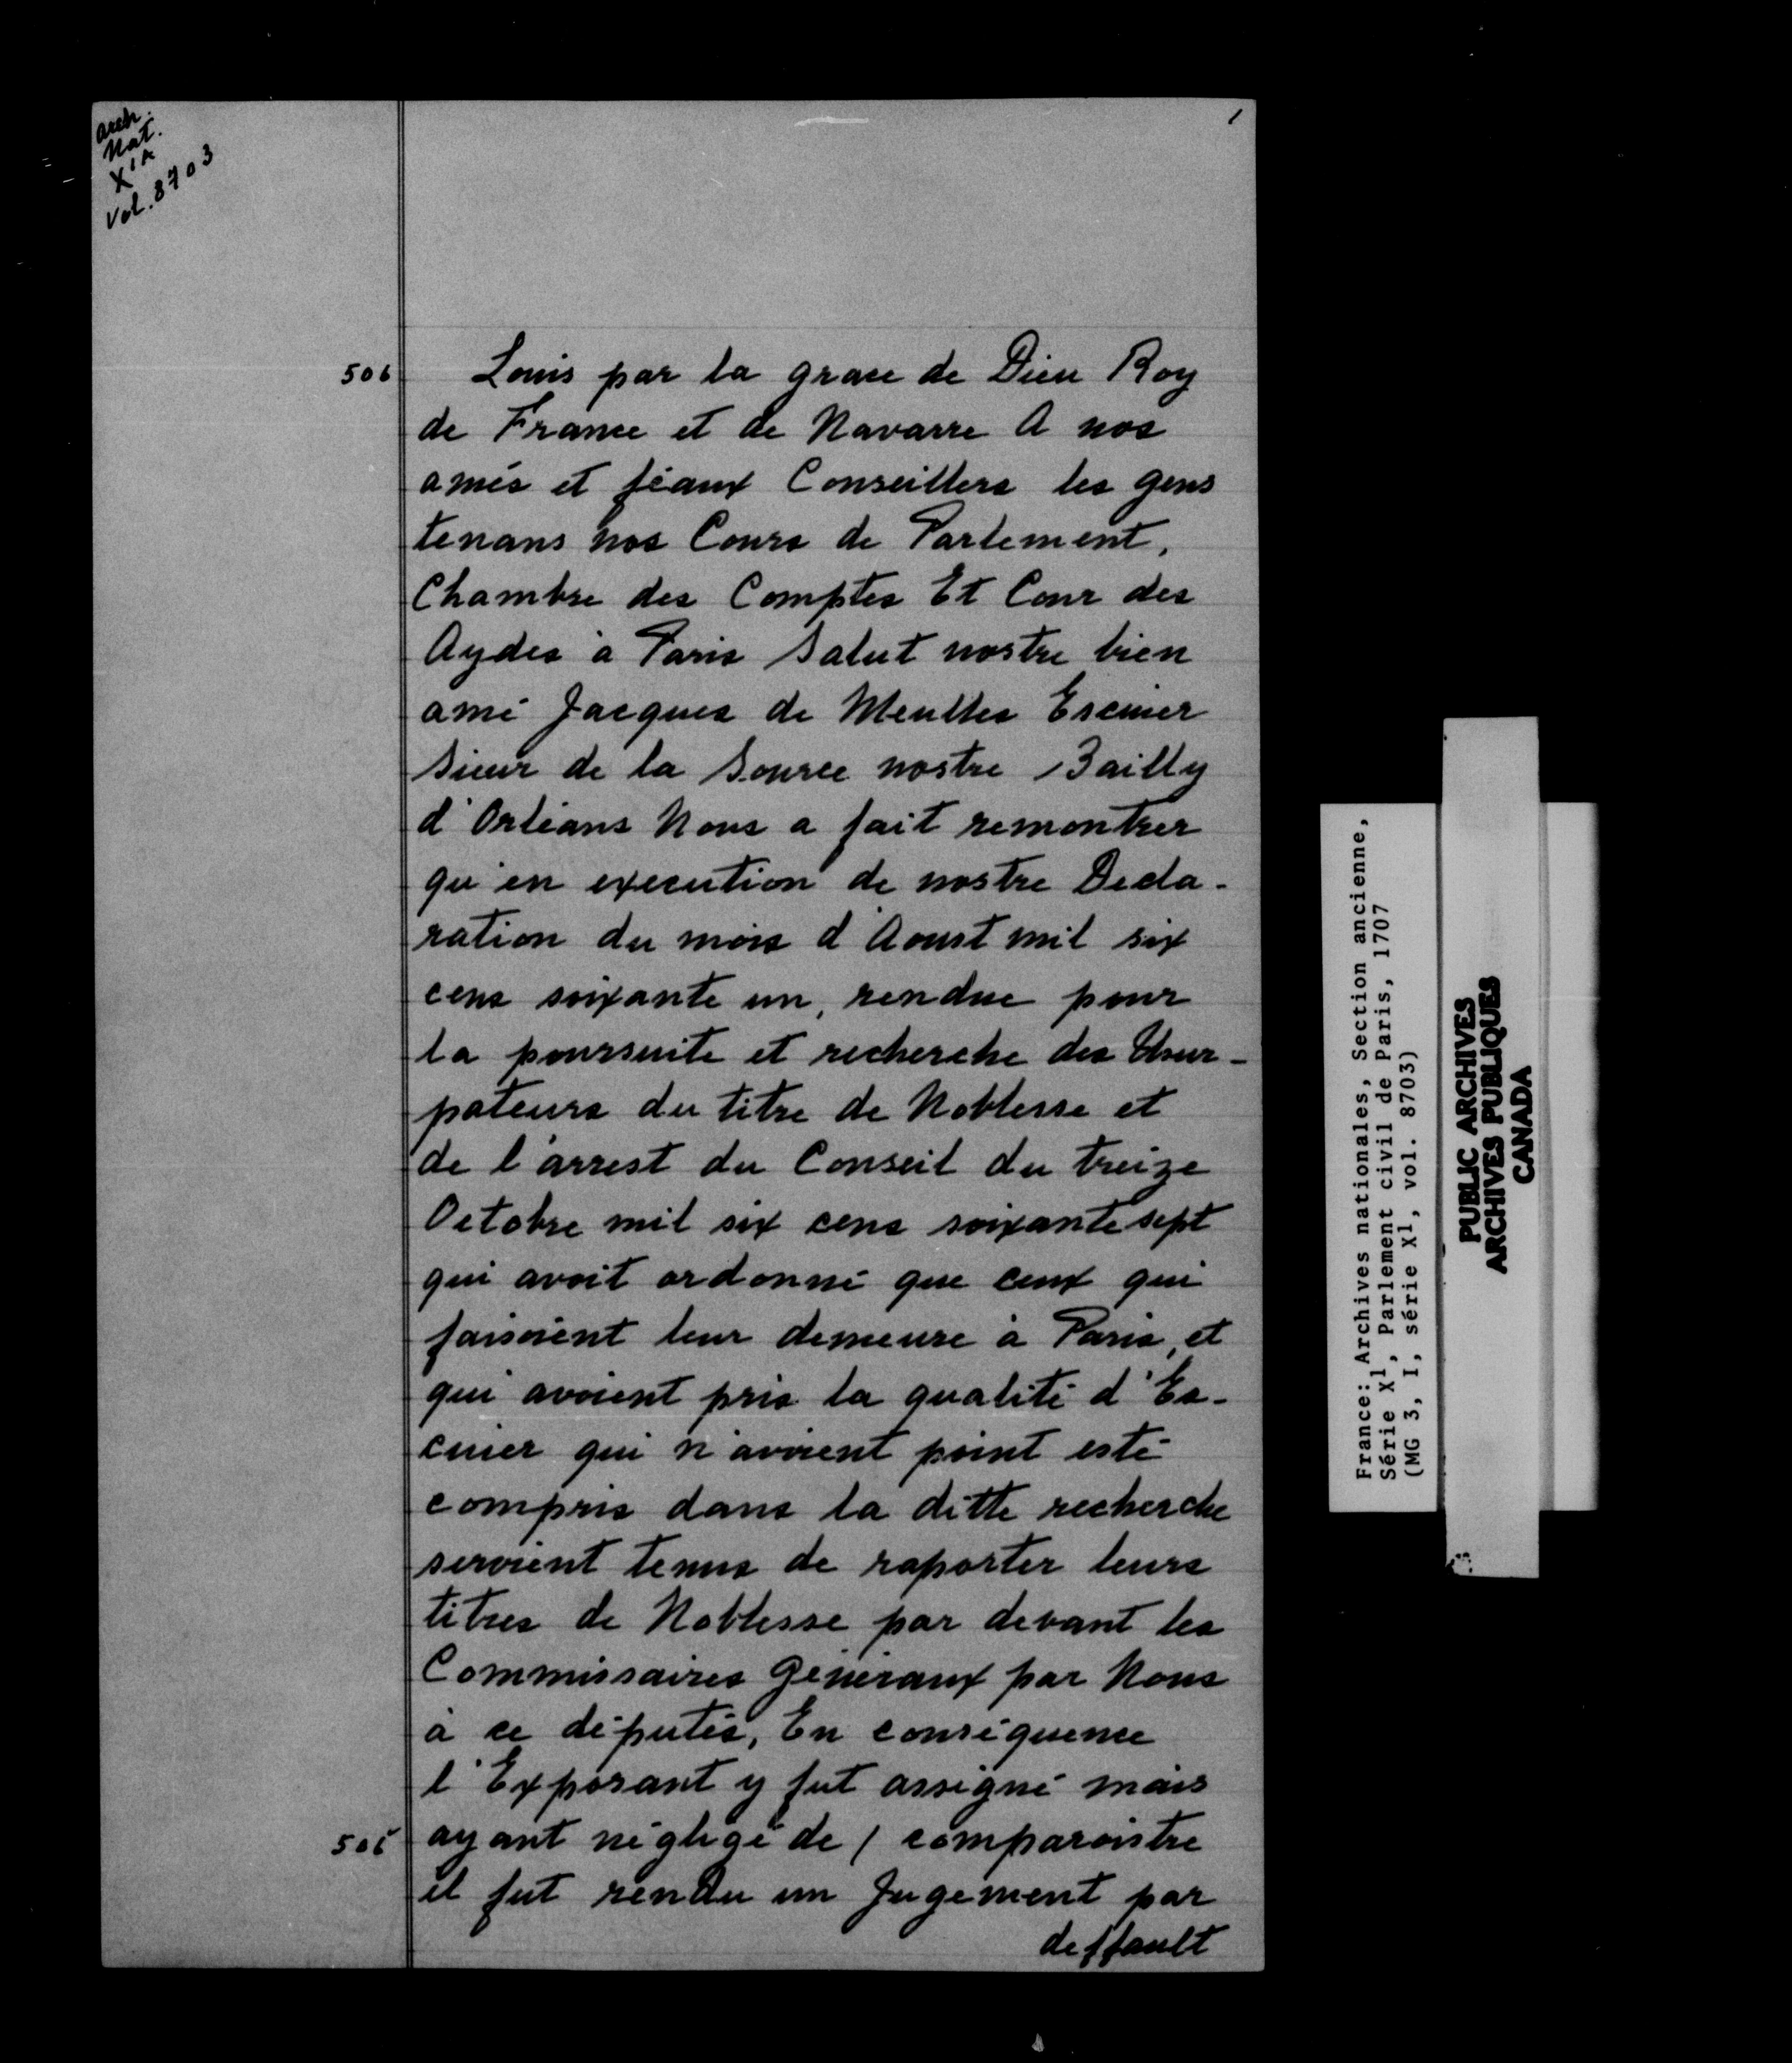 arch.
Nat.
X1A
Vol. 8703
1
506
Louis par la grace de Dieu Roy
de France et de Navarre A nos
amés et féaux Conseillers les gens
tenans nos Cours de Parlement,
Chambre des Comptes Et Cour des
Aydes à Paris Salut nostre bien
amé Jacques de Meulles Escuier
Sieur de la Source nostre Bailly
d'Orléans Nous a fait remontrer
qu'en execution de nostre Decla-
ration du mois d'Aoust mil six
cens soixante un, rendue pour
la poursuite et recherche des Usur-
pateurs du titre de Noblesse et
de l'arrest du Conseil du treize
Octobre mil six cens soixante sept
qui avoit ordonné que ceux qui
faisoient leur demeure à Paris, et
qui avoient pris la qualité d'Es-
cuier qui n'avoient point esté
compris dans la ditte recherche
seroient tenus de raporter leurs
titres de Noblesse par devant les
Commissaires Généraux par Nous
à ce députés, En conséquence
l'Exposant y fut assigné mais
ayant négligé de / comparoistre
il fut rendu un Jugement par
deffault
France: Archives nationales, Section ancienne,
Série X1, Parlement civil de Paris, 1707
(MG 3, I, série X1, vol. 8703)
PUBLIC ARCHIVES
ARCHIVES PUBLIQUES
CANADA